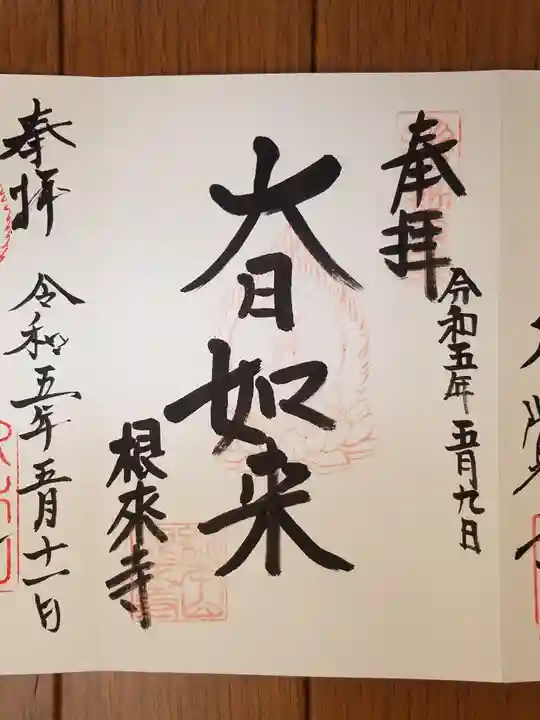 奉拝
令和五年五月九日
大日如来
根来寺
奉拝
令和五年五月十一日